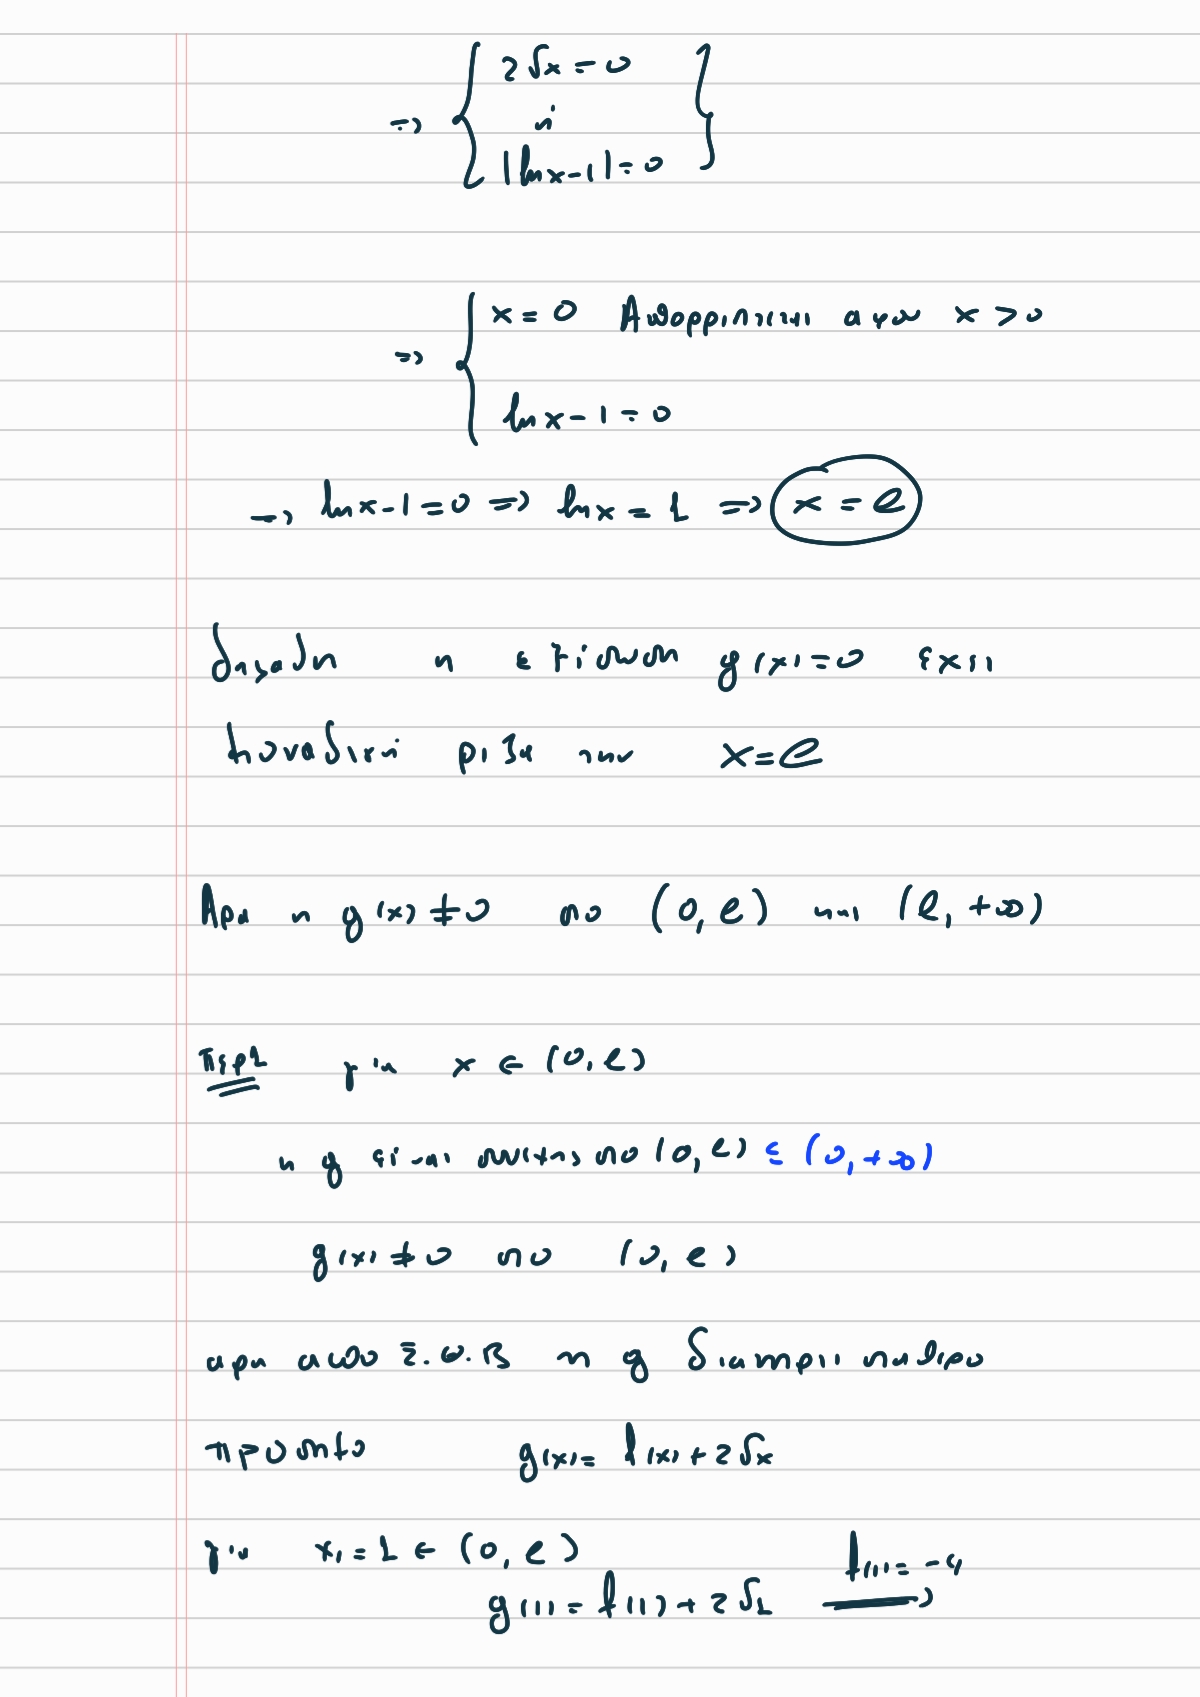 ⇒ { 2√x = 0
ή
|lnx-1| = 0 }
⇒ { x = 0 Απορρίπτεται αφου x > 0
lnx - 1 = 0
→ lnx-1=0 ⇒ lnx = 1 ⇒ x = e
δηλαδη η εξίσωση g(x)=0 εχει
μοναδική ρίζα την x=e
Αρα η g(x) ≠ 0 στο (0, e) και (e, +∞)
Περ1 για x ∈ (0, e)
η g είναι συνεχης στο (0, e) ⊆ (0, +∞)
g(x) ≠ 0 στο (0, e)
αρα απο Σ.Θ.Β η g διατηρει σταθερο
προσημο g(x) = f(x) + 2√x
για x₁ = 1 ∈ (0, e) f(1) = -4
g(1) = f(1) + 2√1 ⟹